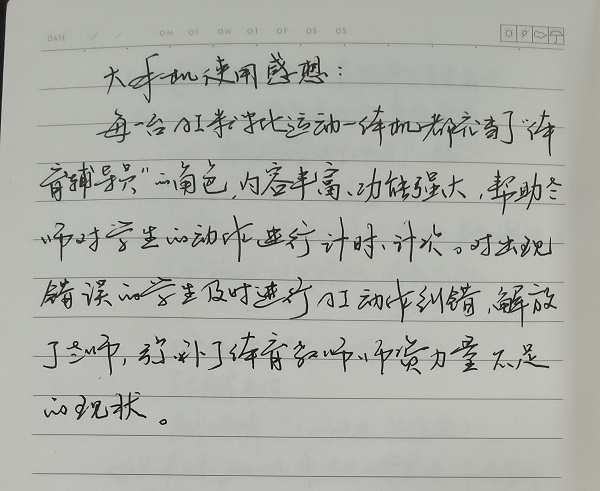 DATE
MO TU WE TH FR SA SU
大手机使用感想：
每一台AI米洋比运动一体机都充当了“体
育辅导员”的角色，内容丰富、功能强大，帮助老
师对学生的动作进行计时、计次。对出现
错误的学生及时进行AI动作纠错，解放
了老师，弥补了体育教师师资力量不足
的现状。